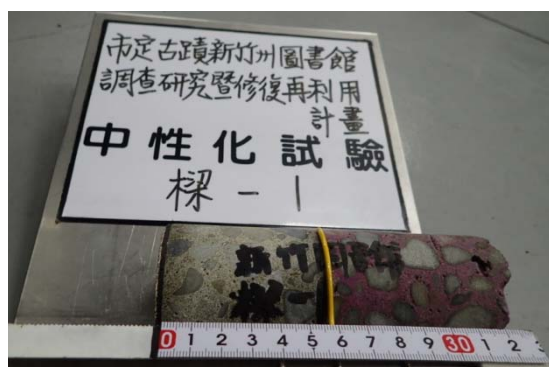 市定古蹟新竹州圖書館
調查研究暨修復再利用
計畫
中性化試驗
樑-1
新竹圖書館
樑-1
0 1 2 3 4 5 6 7 8 9 30 1 2